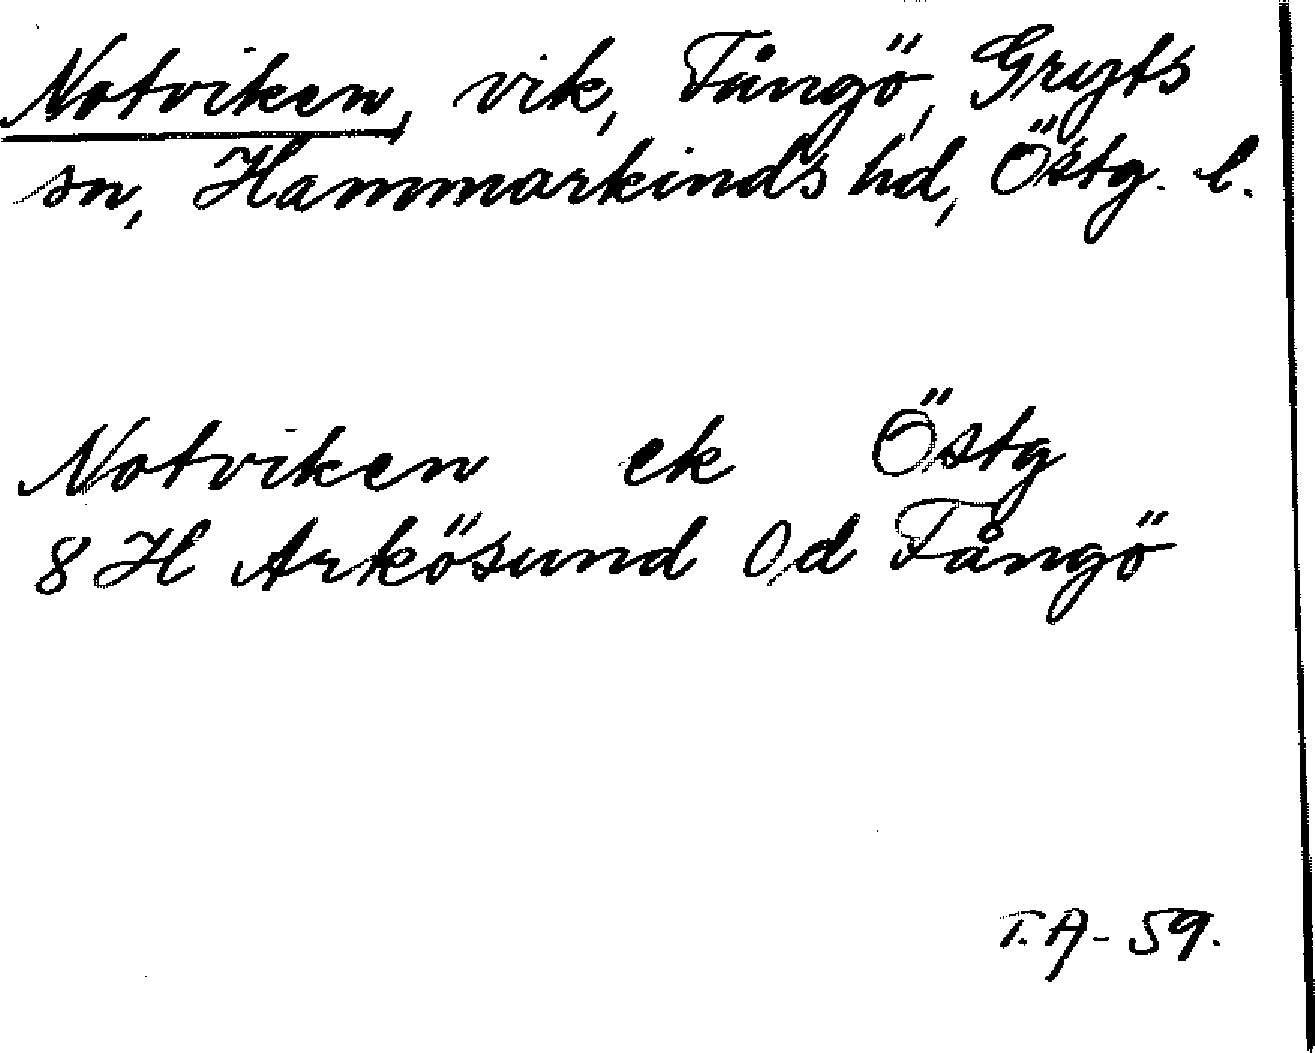 Notviken, vik, Fångö, Gryts
sn, Hammarkinds hd, Östg. l.
Notviken ek Östg
8 H Arkösund 0d Fångö
T. A - 59.